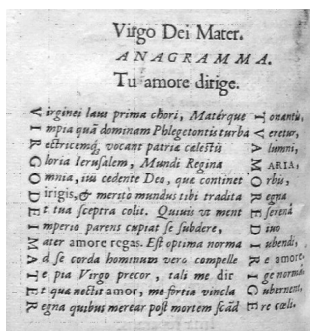 Virgo Dei Mater.
ANAGRAMMA.
Tu amore dirige.
Virginei laus prima chori, Matérque Tonantis,
Impia quã dominam Phlegetontis turba Veretur,
Rectricemq́; vocant patriæ cælestis Alumni,
Gloria Ierusalem, Mundi Regina MARIA,
Omnia, iũs cedente Deo, quæ continet Orbis,
Dirigis, & merito mundus tibi tradita Regna
Et tua sceptra colit. Quiuis vt ment Eserenâ
Imperio parens cupiat se subdere, Diuo
Mater amore regas. Est optima norma Iubendi,
Ad se corda hominum vero compelleRe amore.
Te pia Virgo precor, tali me dirIge normâ:
Et quæ nectit amor, me fortia vincla Gubernent,
Regna quibus merear post mortem scãdEre cœli.